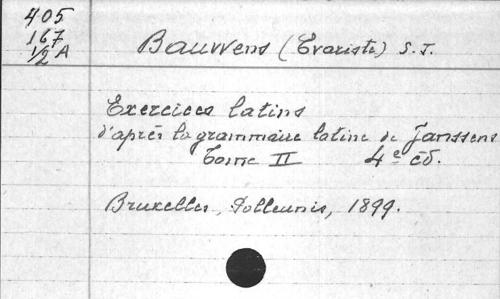 405
167
1/2 A
Bauwens (Evariste) S.J.
Exercices latins
d'après la grammaire latine de Janssens
Tome II 4e éd.
Bruxelles, Polleunis, 1899.